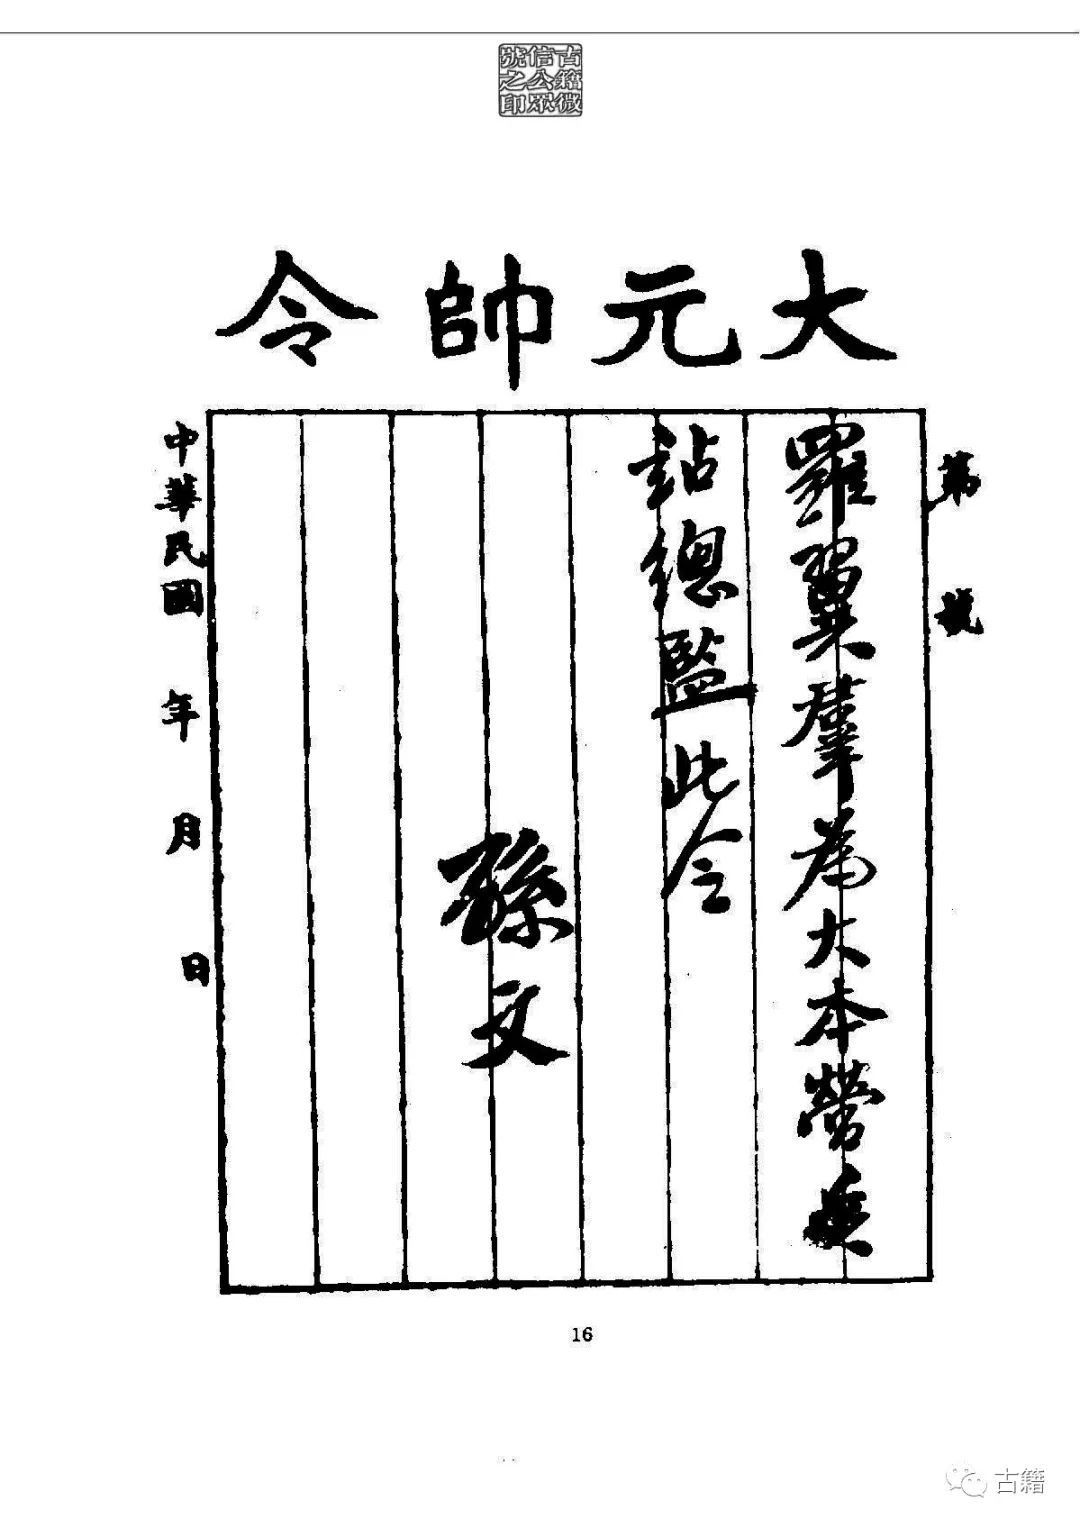 古籍微
信公眾
號之印
大元帥令
第 號
羅翼羣為大本營兵
站總監此令
孫文
中華民國 年 月 日
16
古籍